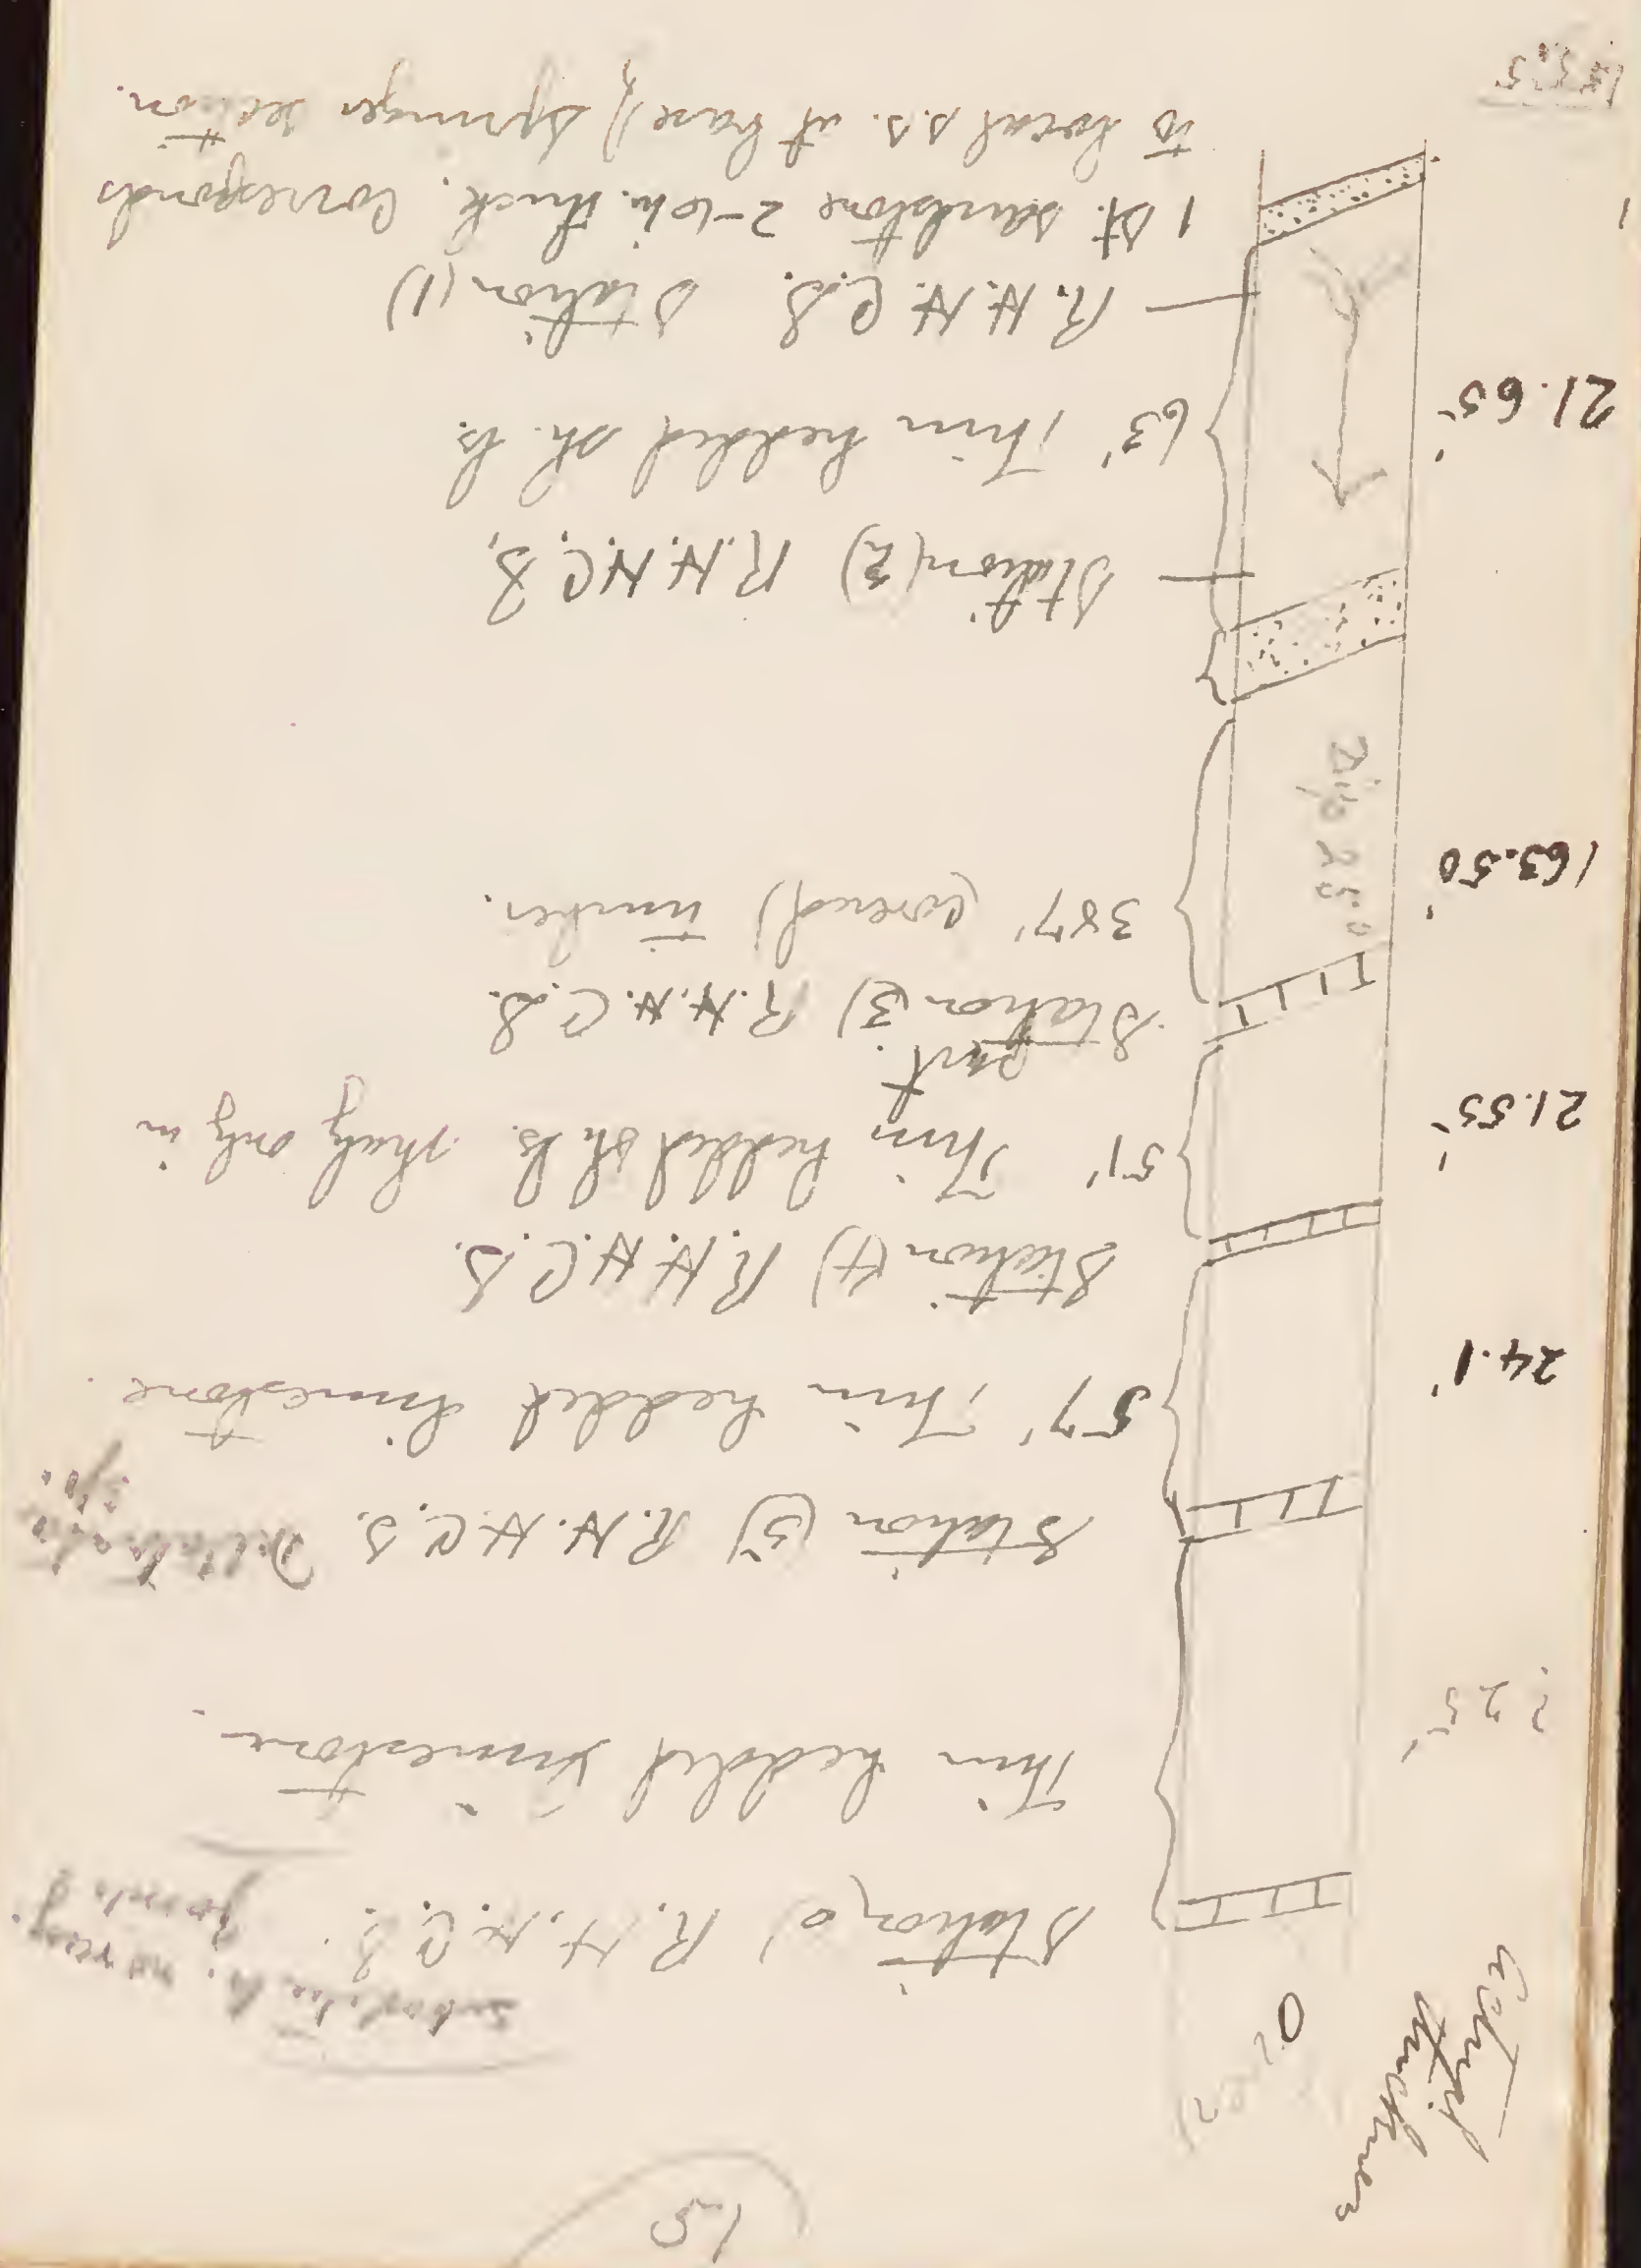 Actual
thickness
Station 6) R. H. H. C. S.
Thin bedded limestone
? 25'
Station (5) R. H. H. C. S.
57' Thin bedded limestone.
24.1'
Station (4) R. H. H. C. S.
51' Thin bedded sh. ls. shaly only in
part.
21.55'
Station (3) R. H. H. C. S.
387' Covered) timber.
163.50'
Dip 25°
Station (2) R. H. H. C. S.
63' Thin bedded sh. ls.
21.65'
R. H. H. C. S. Station (1)
1 st. sandstone 2-10 in. thick. Corresponds
to local s.s. at base of Springer section.